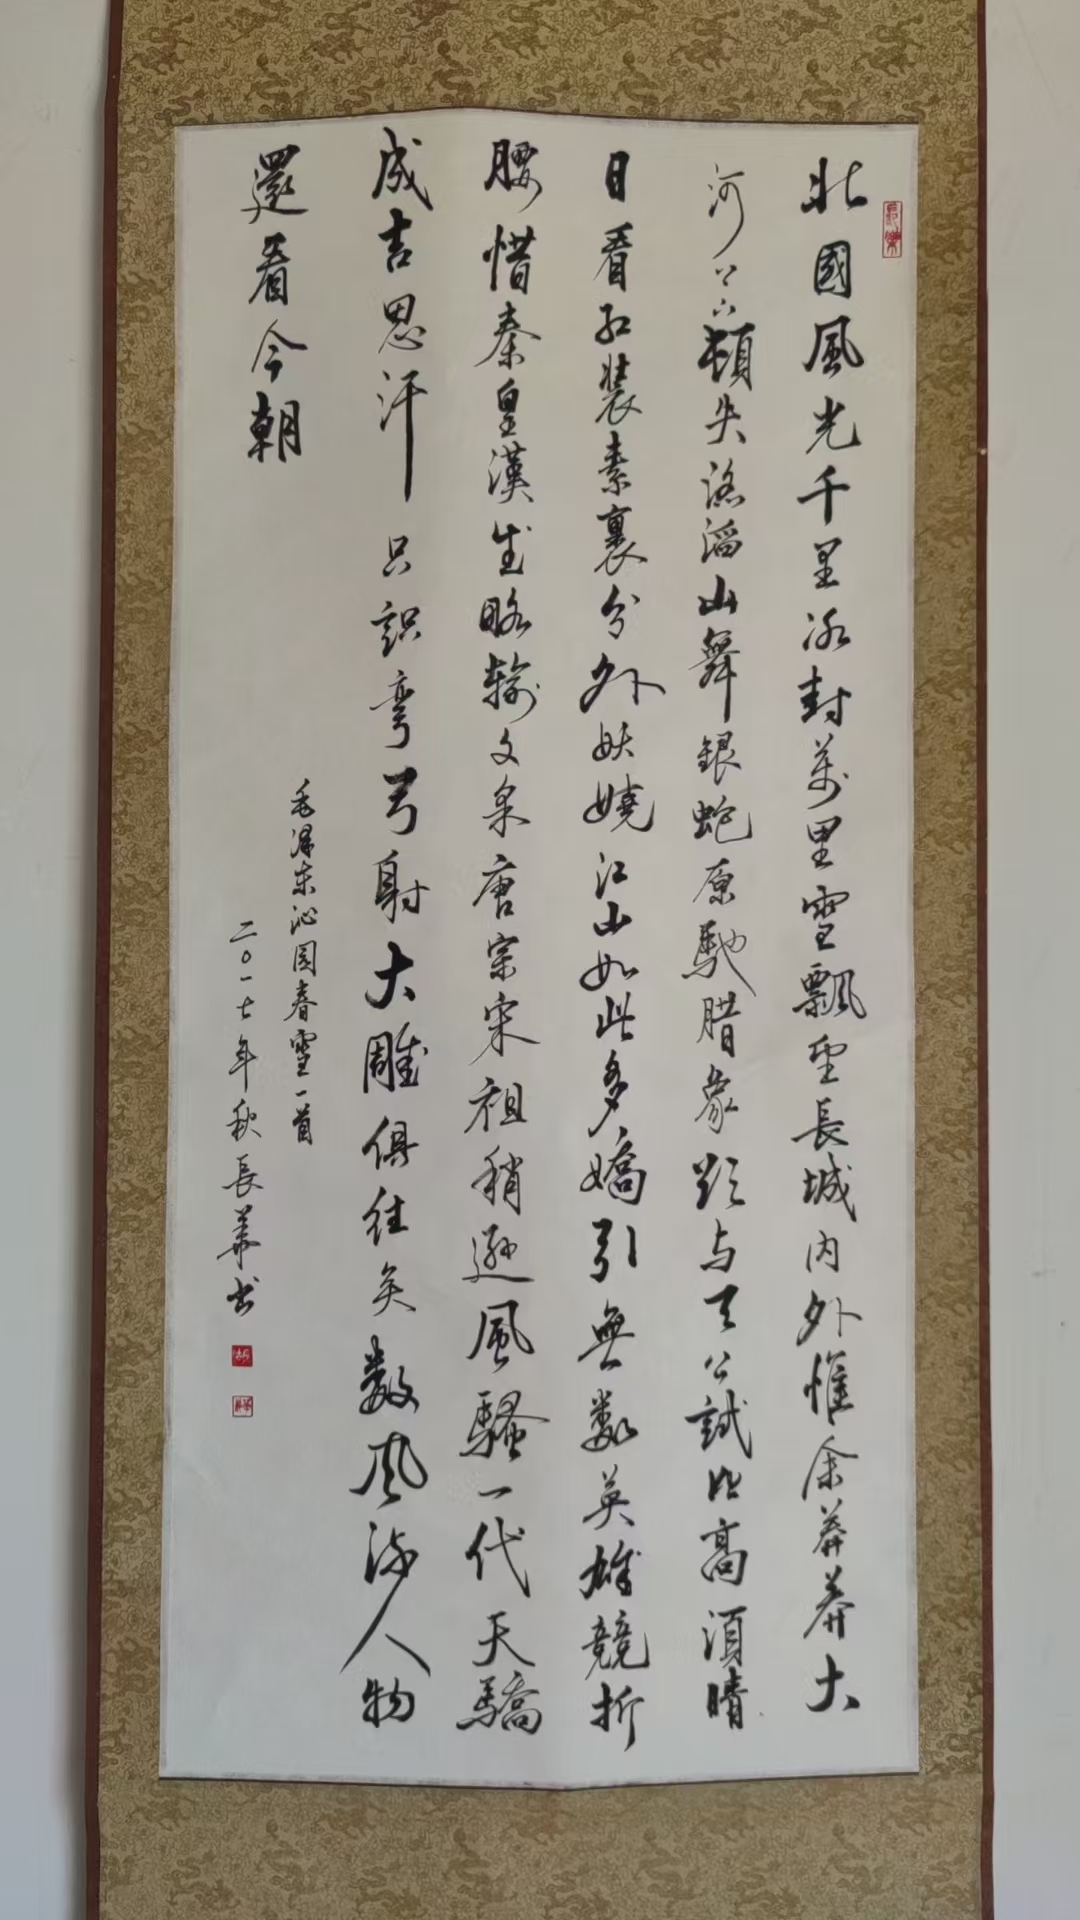 北國風光千里冰封萬里雪飄望長城內外惟余莽莽大
河上下頓失滔滔山舞銀蛇原馳腊象欲与天公試比高須晴
日看紅裝素裹分外妖嬈江山如此多嬌引無數英雄競折
腰惜秦皇漢武略輸文采唐宗宋祖稍遜風騷一代天驕
成吉思汗只識彎弓射大雕俱往矣數風流人物
還看今朝
毛澤东沁园春雪一首
二〇一七年秋長華书